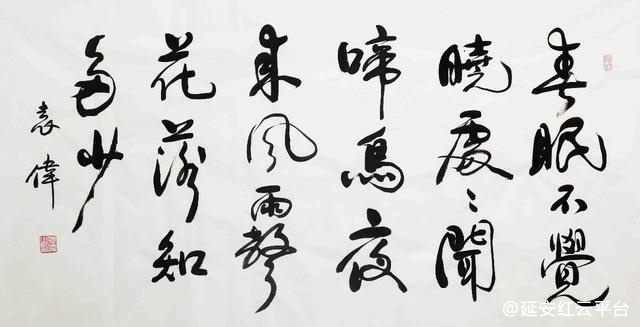 春眠不覺
曉處〻聞
啼鳥夜
來風雨聲
花落知
多少
袁偉
@延安红云平台